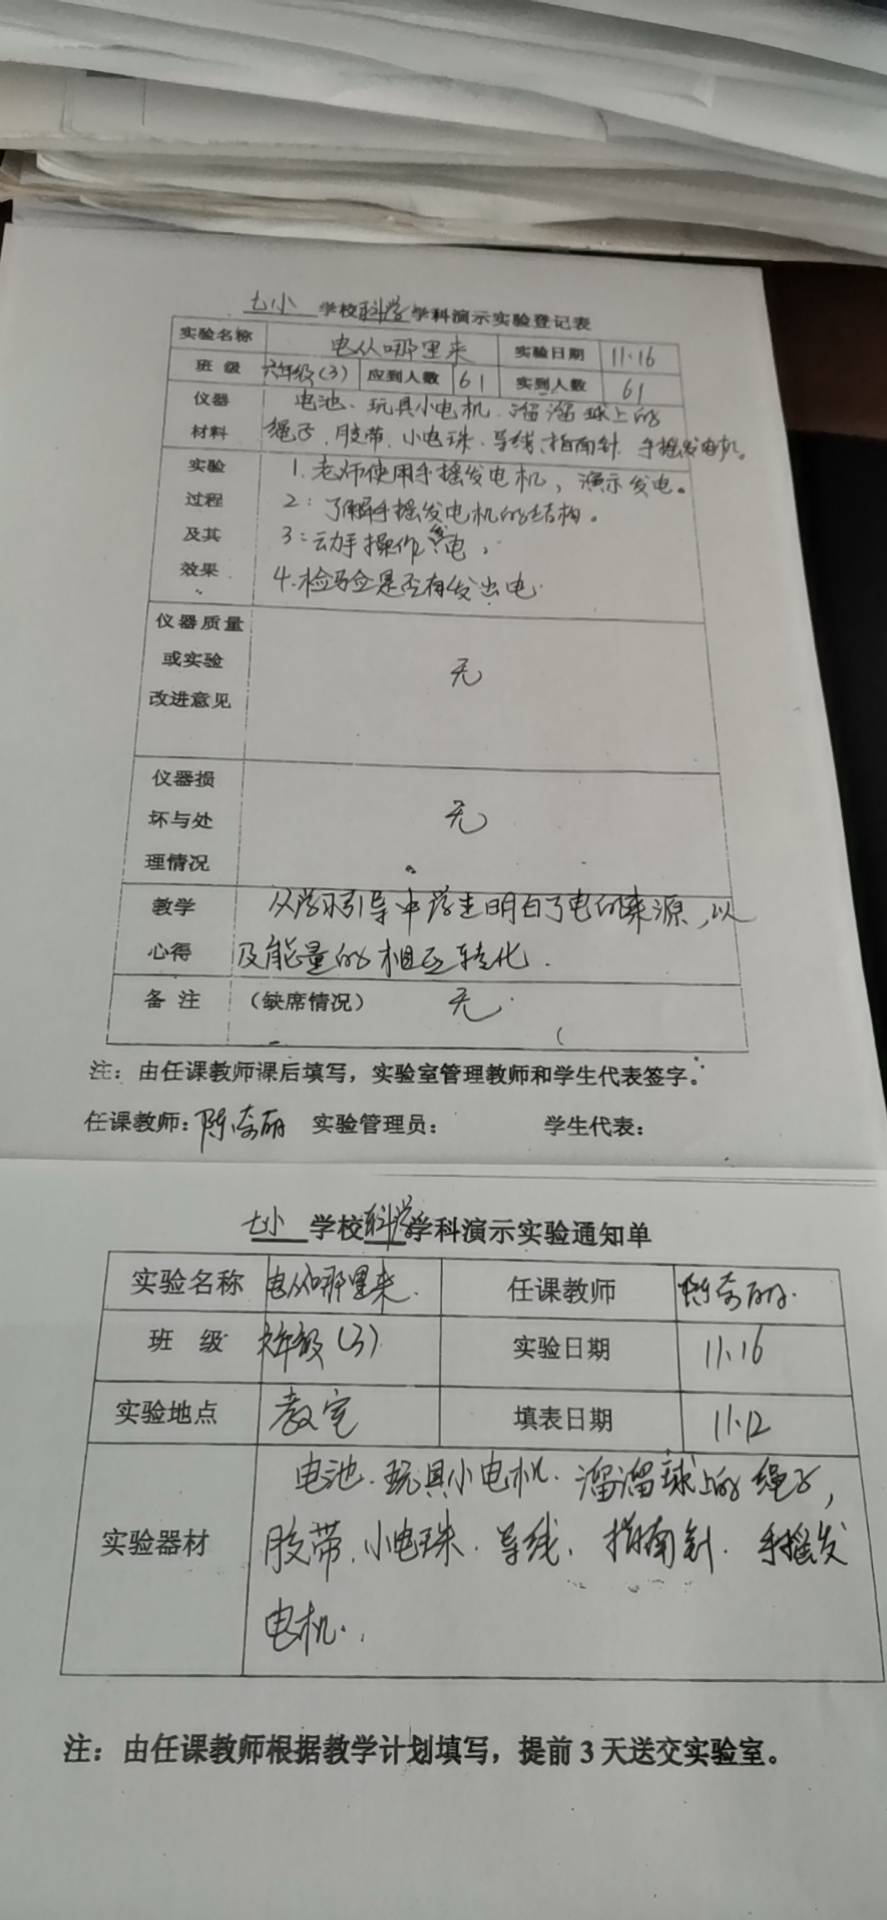 七小 学校科学学科演示实验登记表
实验名称 电从哪里来 实验日期 11.16
班 级 六年级(3) 应到人数 61 实到人数 61
仪器 电池、玩具小电机、溜溜球上的
材料 绳子、胶带、小电珠、导线、指南针、手摇发电机。
实验 1.老师使用手摇发电机，演示发电。
过程 2：了解手摇发电机的结构。
及其 3：动手操作发电，
效果 4.检验是否有发出电.
仪器质量
或实验 无
改进意见
仪器损
坏与处 无
理情况
教学 从学习引导中学生明白了电的来源，以
心得 及能量的相互转化.
备 注 （缺席情况） 无.
注：由任课教师课后填写，实验室管理教师和学生代表签字。
任课教师：陈奇丽 实验管理员： 学生代表：
七小 学校科学学科演示实验通知单
实验名称 电从哪里来. 任课教师 陈奇丽.
班 级 六年级(3) 实验日期 11.16
实验地点 教室 填表日期 11.12
电池、玩具小电机、溜溜球上的绳子，
实验器材 胶带、小电珠、导线、指南针、手摇发
电机.
注：由任课教师根据教学计划填写，提前 3 天送交实验室。